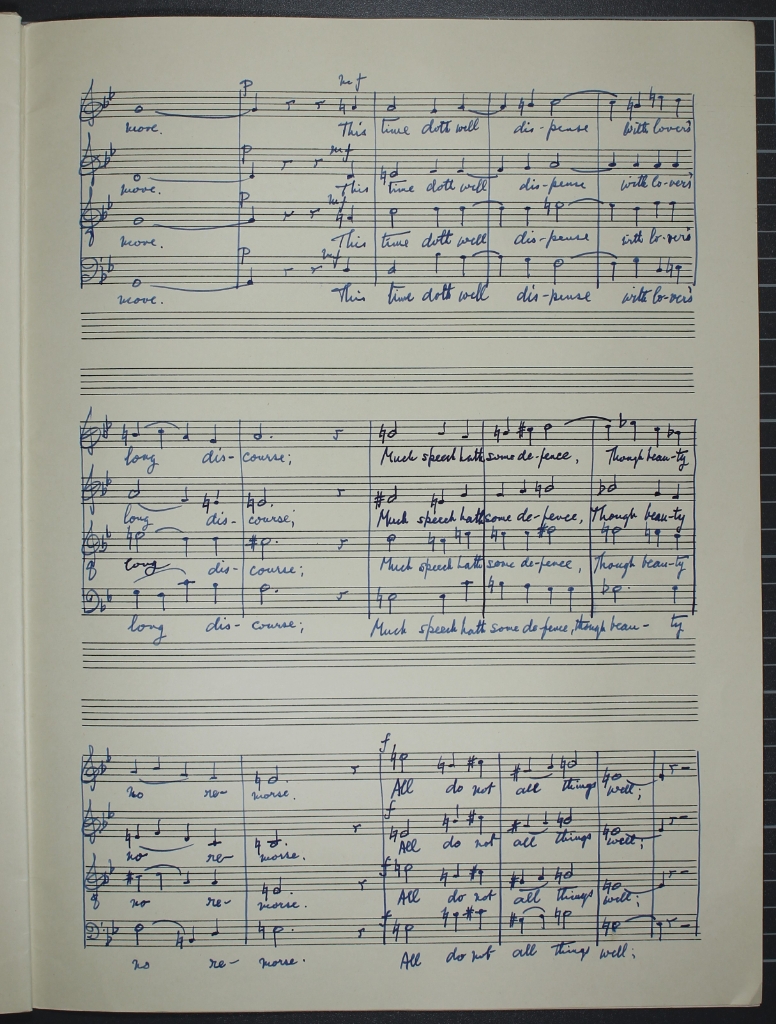 p
mf
move. This time doth well dis-pense with lovers
p
mf
move. This time doth well dis-pense with lo-vers
p
mf
move. This time doth well dis-pense with lo-vers
p
mf
move. This time doth well dis-pense with lo-vers
long dis- course; Much speech hath some de-fence, Though beau-ty
long dis- course; Much speech hath some de-fence, Though beau-ty
long dis- course; Much speech hath some de-fence, Though beau-ty
long dis- course; Much speech hath some de-fence, though beau- ty
f
no re- morse. All do not all things well;
f
no re- morse. All do not all things well;
f
no re- morse. All do not all things well;
f
no re- morse. All do not all things well;